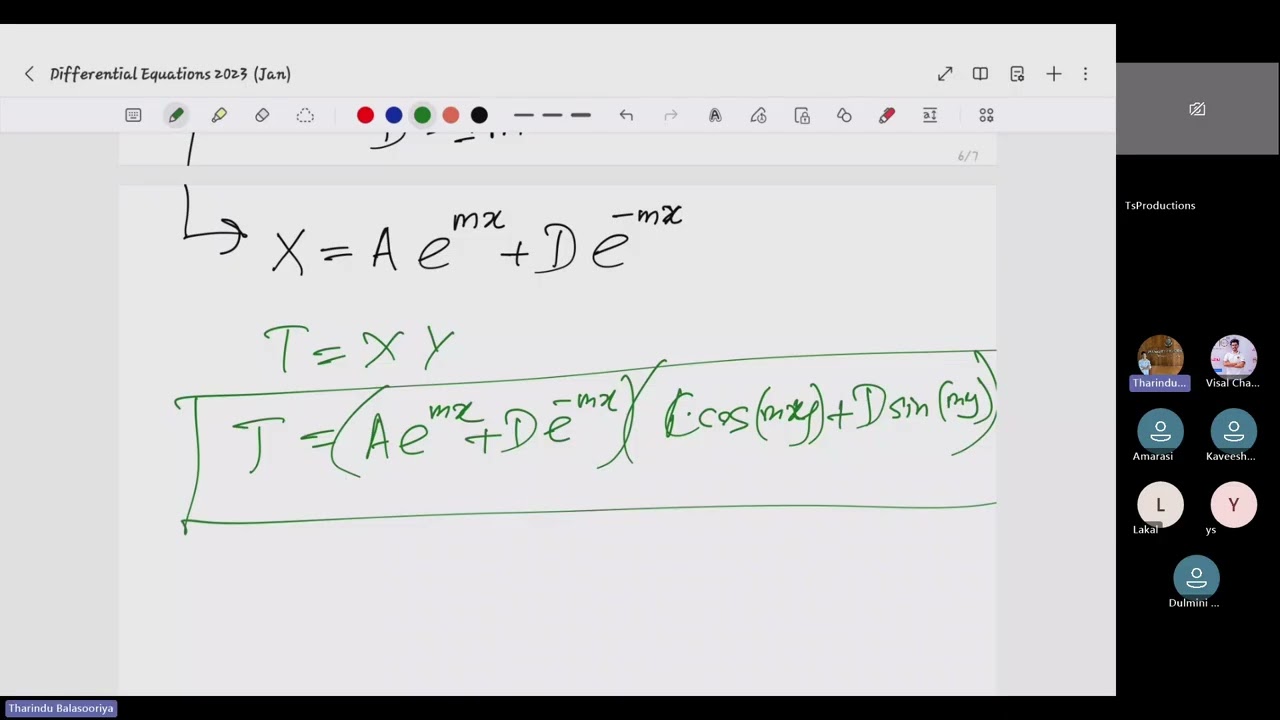 Differential Equations 2023 (Jan)
6/7
X = A e^{mx} + D e^{-mx}
T = X Y
T = (A e^{mx} + D e^{-mx}) (C cos(my) + D sin(my))
TsProductions
Tharindu...
Visal Cha...
Amarasi
Kaveesh...
L
Y
Lakal
ys
Dulmini ...
Tharindu Balasooriya